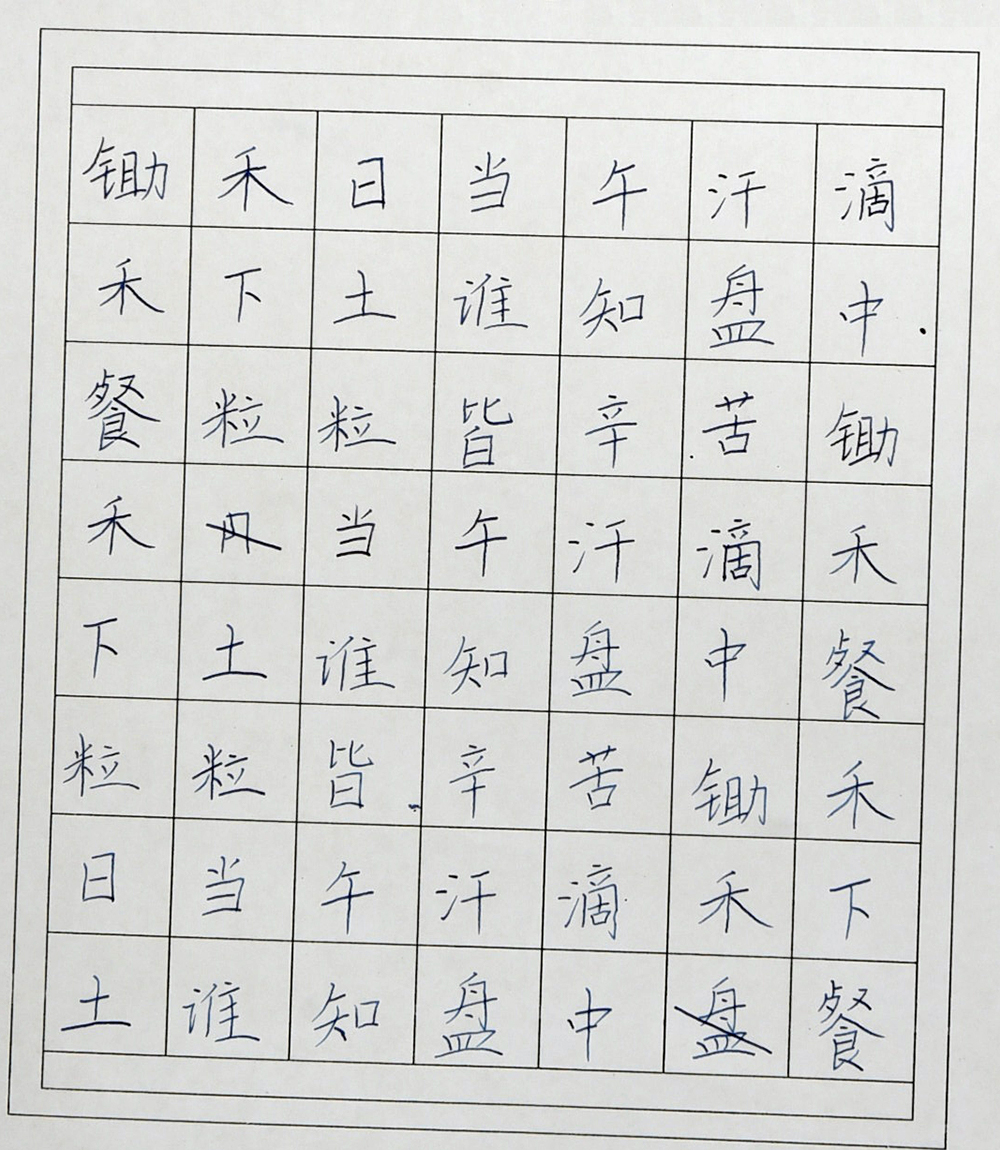 锄禾日当午汗滴
禾下土谁知盘中
餐粒粒皆辛苦锄
禾当午汗滴禾
下土谁知盘中餐
粒粒皆辛苦锄禾
日当午汗滴禾下
土谁知盘中餐